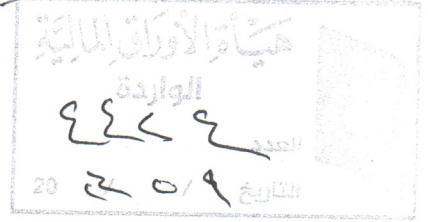 هيأة الأوراق المالية
الواردة
العدد ٤٤٢٤
التاريخ ٩ / ٥ / 20